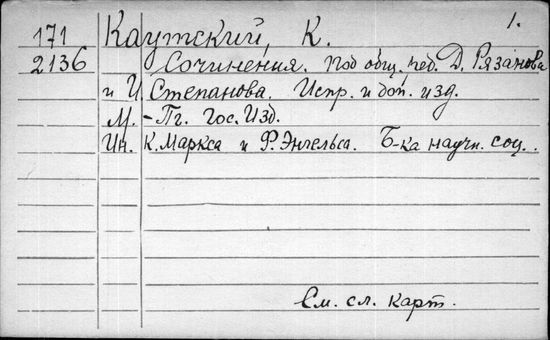 1.
171 Каутский, К.
2136 Сочинения. Под общ. ред. Д. Рязанова
и И. Степанова. Испр. и доп. изд.
М.-Пг. Гос. Изд.
Ин. К. Маркса и Ф. Энгельса. Б-ка научн. соц..
См. сл. карт.